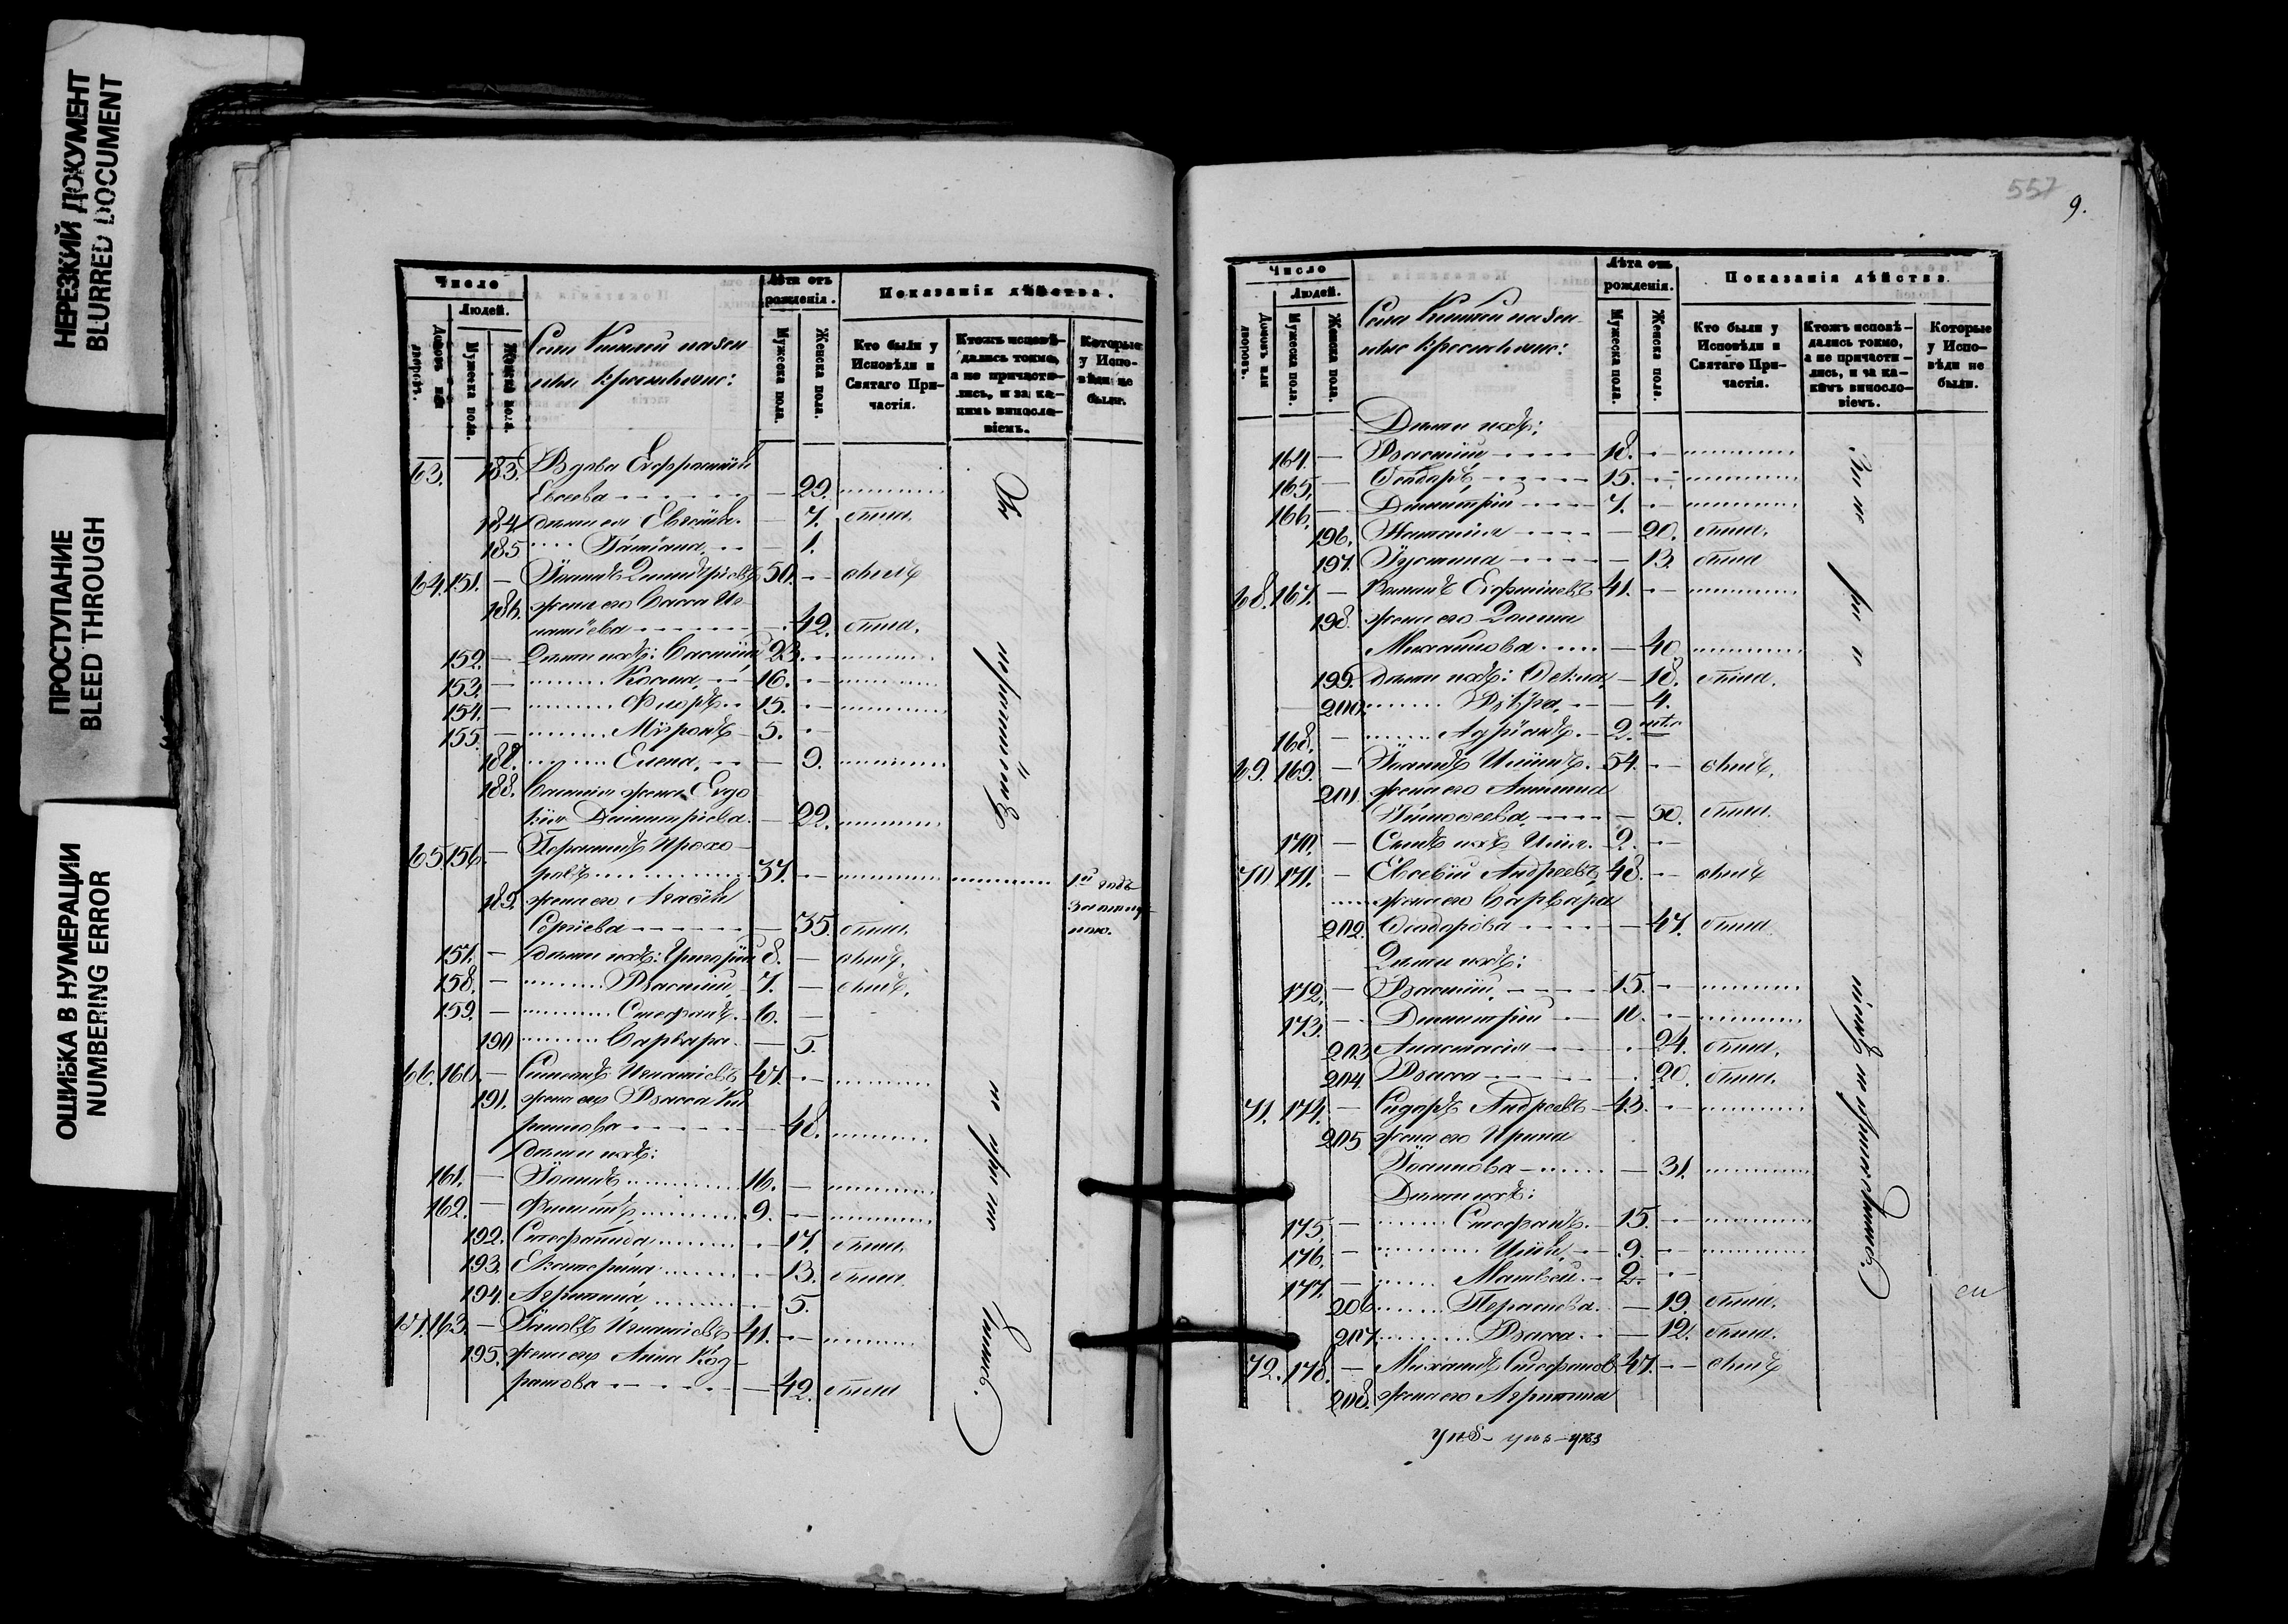 НЕРЕЗКИЙ ДОКУМЕНТ
BLURRED DOCUMENT
ПРОСТУПАНИЕ
BLEED THROUGH
ОШИБКА В НУМЕРАЦИИ
NUMBERING ERROR
Число
Людей.
Домовъ или дворовъ.
Мужеска пола.
Женска пола.
Села
крестьяне:
Лѣта отъ рожденія.
Мужеска пола.
Женска пола.
Показанія дѣйства.
Кто были у Исповѣди и Святаго При-
частія.
Ктожъ исповѣ-
дались токмо,
а не причасти-
лись, и за ка-
кимъ виносло-
віемъ.
Которые
у Испо-
вѣди не
были.
63. 183. Вдова Евфросинія
Евсеева — 29.
184. дети ея Евгенія — 7. была
185. Татіана — 1.
64. 151. — Іоаннъ Димитріевъ 50. — былъ
186. жена его Васса Иг-
натіева — 42. была.
152. — Дети ихъ: Василій 23. —
153. — Косма 16. —
154. — Флоръ 15. —
155. — Миронъ 5. —
188. Елена — 9.
188. Василія жена Евдо
кія Димитріева — 22.
65. 156. — Германъ Прохо-
ровъ 37. — 1й годъ
за отлуч-
кою.
189. жена его Агафія
Сергіева — 35. была.
157. — дети ихъ: Григорій 8. — былъ.
158. — Василій 7. — былъ.
159. — Стефанъ 6. —
190 Варвара — 5.
66. 160. — Симеонъ Игнатіевъ 47. —
191. жена его Васса Ки
рилова — 48.
дети ихъ:
161. — Іоаннъ 16. —
162. — Филиппъ 9. —
192. Стефанида — 17. была
193. Екатерина — 13. была
194. Агрипина — 5.
67. 163. — Іаковъ Игнатіевъ 41. —
195. жена его Анна Код-
ратова — 42. была
557
9.
Число
Людей.
Домовъ или дворовъ.
Мужеска пола.
Женска пола.
Села
крестьяне:
Лѣта отъ рожденія.
Мужеска пола.
Женска пола.
Показанія дѣйства.
Кто были у
Исповѣди и
Святаго При-
частія.
Ктожъ исповѣ-
дались токмо,
а не причасти-
лись, и за ка-
кимъ виносло-
віемъ.
Которые
у Испо-
вѣди не
были.
Дети ихъ:
164. — Василій 18. —
165. — Ѳеодоръ 15. —
166. — Димитрій 7. —
196. Наталія — 20. была.
197. Іустина — 13. была
68. 167. — Романъ Евфиміевъ 41. —
198. жена его Домна
Михаилова — 40.
199. дети ихъ: Ѳекла — 18. была.
200. Вѣра — 4.
168. — Адріанъ 2.
69. 169. — Іоаннъ Иліинъ 54. — былъ.
201. жена его Антонина
Тимоѳеева — 50. была.
170. — Сынъ ихъ Илія 2. —
70 171. — Евсевій Андреевъ 48. — былъ
жена его Варвара
202. Ѳеодорова — 47. была
Дети ихъ:
172. — Василій 15. —
173. — Димитрій 10. —
203. Анастасія — 24. была.
204. Васса 20. была.
71. 174. — Сидоръ Андреевъ 43. —
205 жена его Ирина
Іоаннова — 31.
Дети ихъ:
175. — Стефанъ. 15. —
176. — Илія 9. —
177. — Матвей. 2. —
206 Пераскева. — 19. была.
207. Васса. — 12. была.
72. 178. — Михаилъ Стефановъ 47. — былъ
208. жена его Агрипина